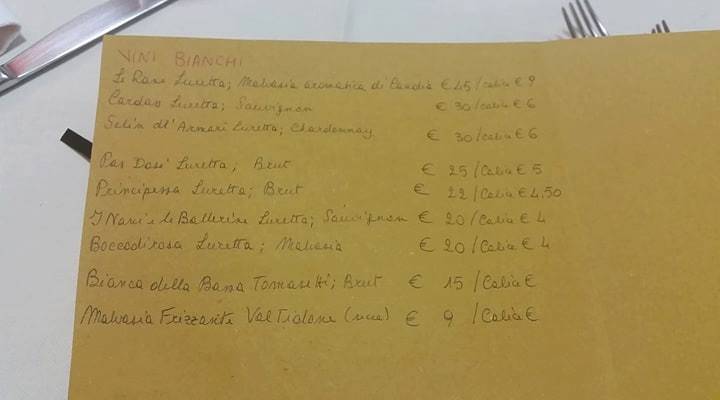 VINI BIANCHI
Le Rane Luretta; Malvasia aromatica di Candia € 45/Calice € 9
Cardas Luretta; Sauvignon € 30/Calice € 6
Selin dl'Armari Luretta; Chardonnay € 30/Calice € 6
Pas Dosé Luretta; Brut € 25/Calice € 5
Principessa Luretta; Brut € 22/Calice € 4,50
I Nani e le Ballerine Luretta; Sauvignon € 20/Calice € 4
Boccadirosa Luretta; Malvasia € 20/Calice € 4
Bianca della Bassa Tomasetti; Brut € 15/Calice €
Malvasia Frizzante Val Tidone € 9/Calice €